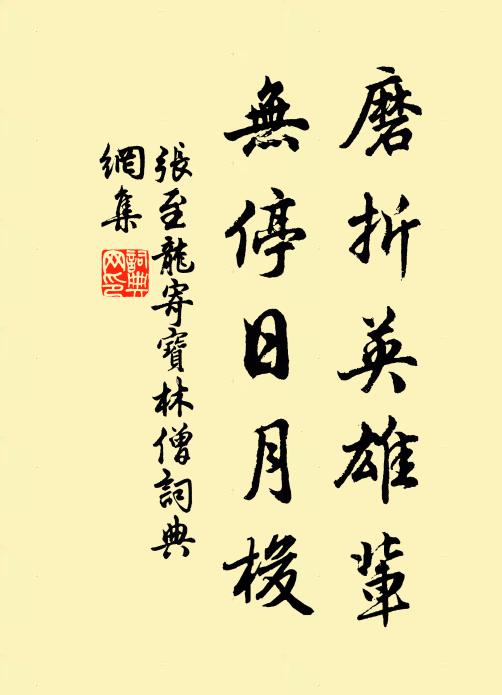 磨折英雄輩
無停日月梭
張至龍寄寶林僧詞典
網集
詞典
网印